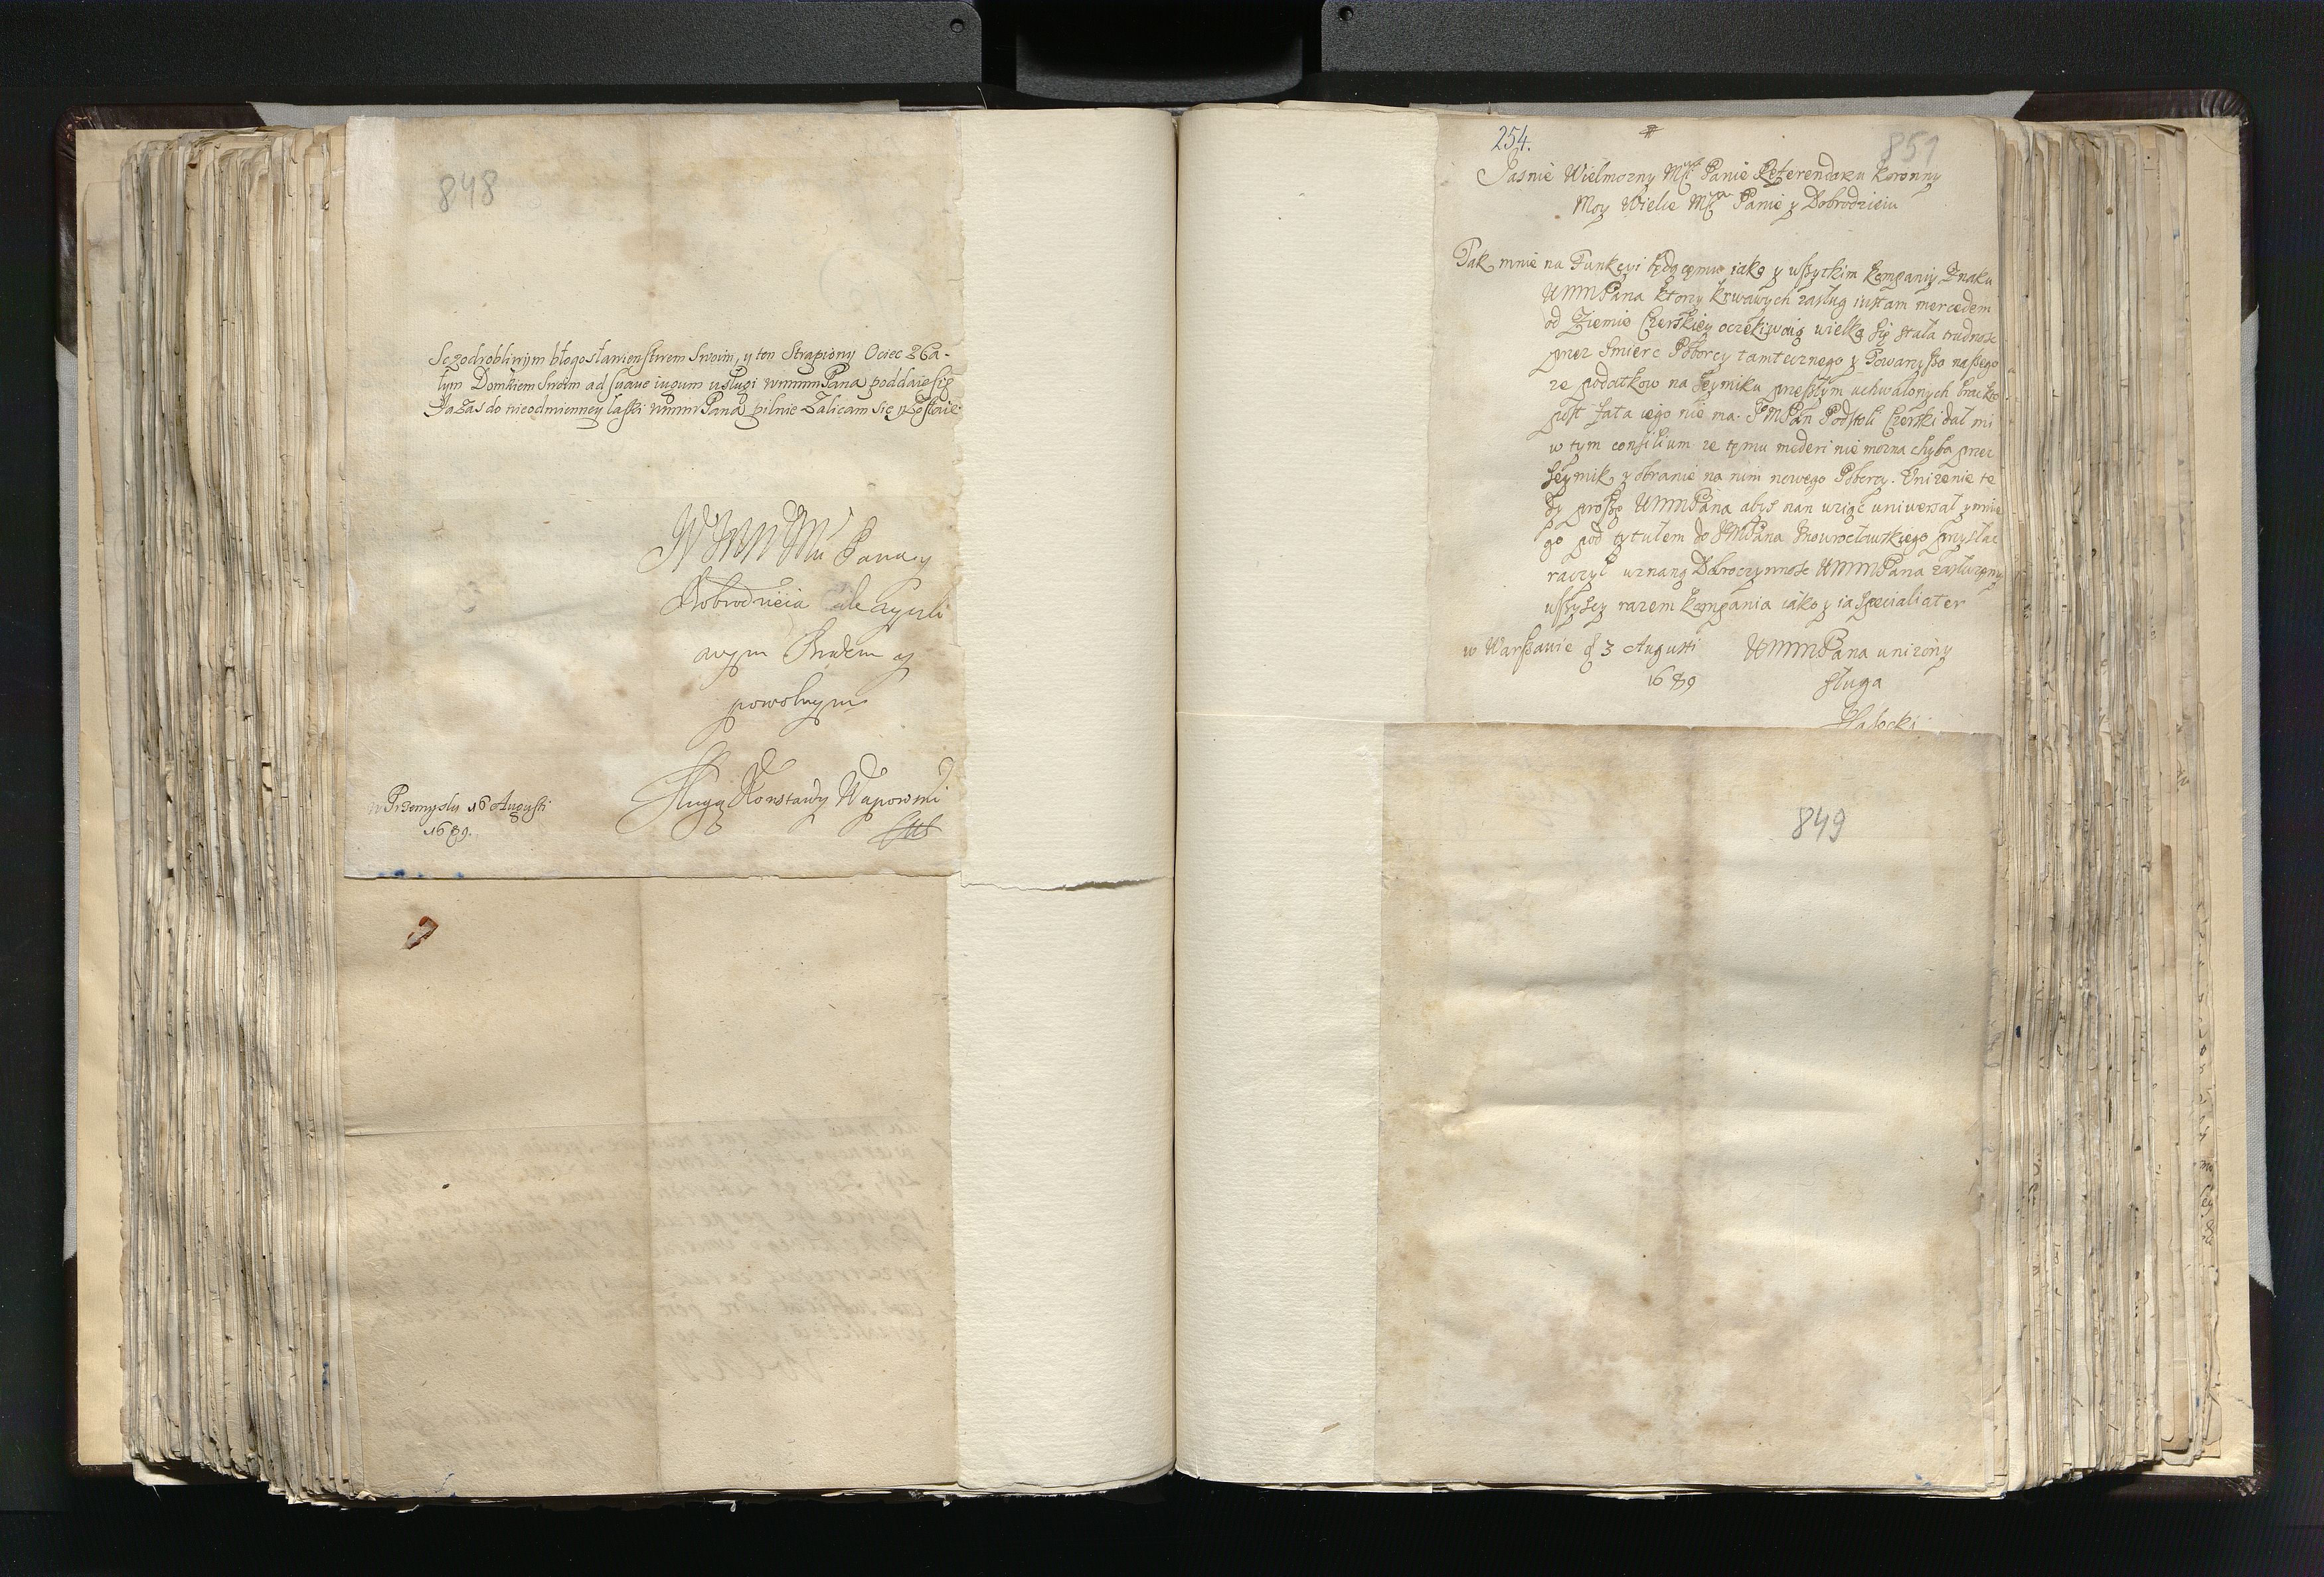 848
Sczodrobliwym błogosławienstwem Swoim, y ten Strapiony Ociec z Ca-
łym Domkiem Swoim ad suave iugum usługi wmmmPana poddaie się
Ja zas do nieodmienney łaski wmmPana pilnie zalicam się zostaie
WMM Mu Pana y
Dobrodzieia
Bratem y
powolnym
Sługą Konstanty Wapowski
w Przemyslu 16 Augusti
1689.
254.
851
Jasnie Wielmozny Mści Panie Referendarzu Koronny
Moy Wielce Mści Panie y Dobrodzieiu
Tak mnie na Funkcyi będącemu iako y wszytkim kompaniy Znaku
WMMPana ktorzy krwawych zasług iustam mercedem
od Ziemie Czerskiey oczekiwaią wielka się stała trudnosc
przez Smierc Poborcy tamtecznego y Towarzysza naszego
ze podatkow na Seymiku przeszłym uchwalonych brac kto
post fata iego nie ma. JMPan Podstoli Czerski dał mi
w tym consilium ze temu mederi nie mozna chyba przez
Seymik y obranie na nim nowego Poborcy. Unizenie te
dy proszę WMMPana abys nan wziąc uniwersał y mnie
go pod tytułem do JMPana Inowrocławskiego przysłac
raczył uznaną Dobroczynnosc WMMPana
wszyscy razem kompania iako y ia specialiter
w Warszawie d 3 Augusti WMMPana unizony
1689 sługa
849